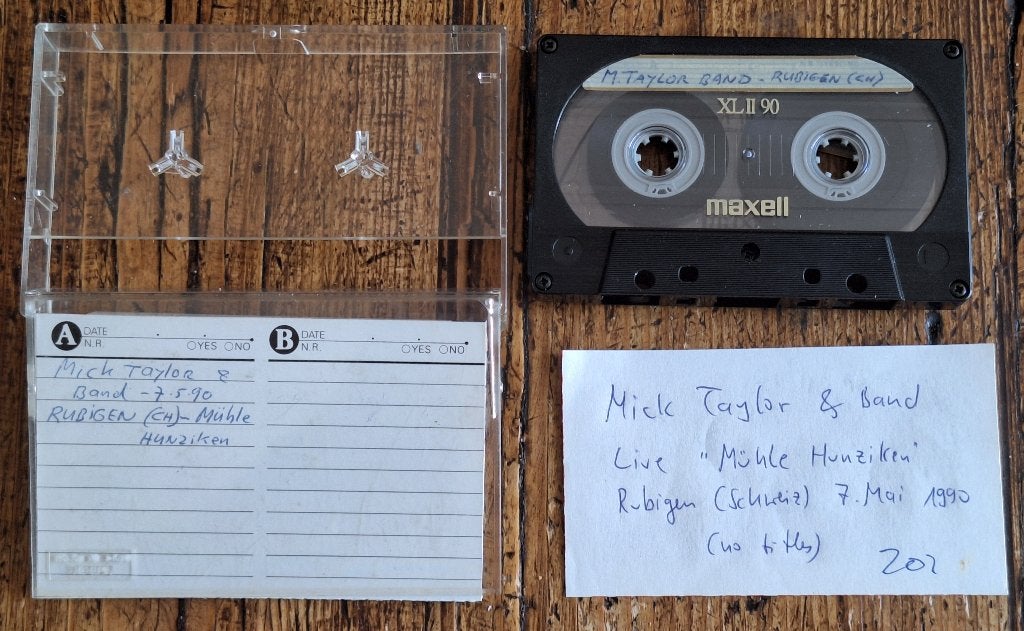 M. TAYLOR BAND - RUBIGEN (CH)
XLII 90
maxell
A DATE
N.R. YES NO
B DATE
N.R. YES NO
Mick TAYLOR &
Band - 7.5.90
RUBIGEN (CH) - Mühle
Hunziken
Mick Taylor & Band
Live "Mühle Hunziken"
Rubigen (Schweiz) 7. Mai 1990
(no titles)
202